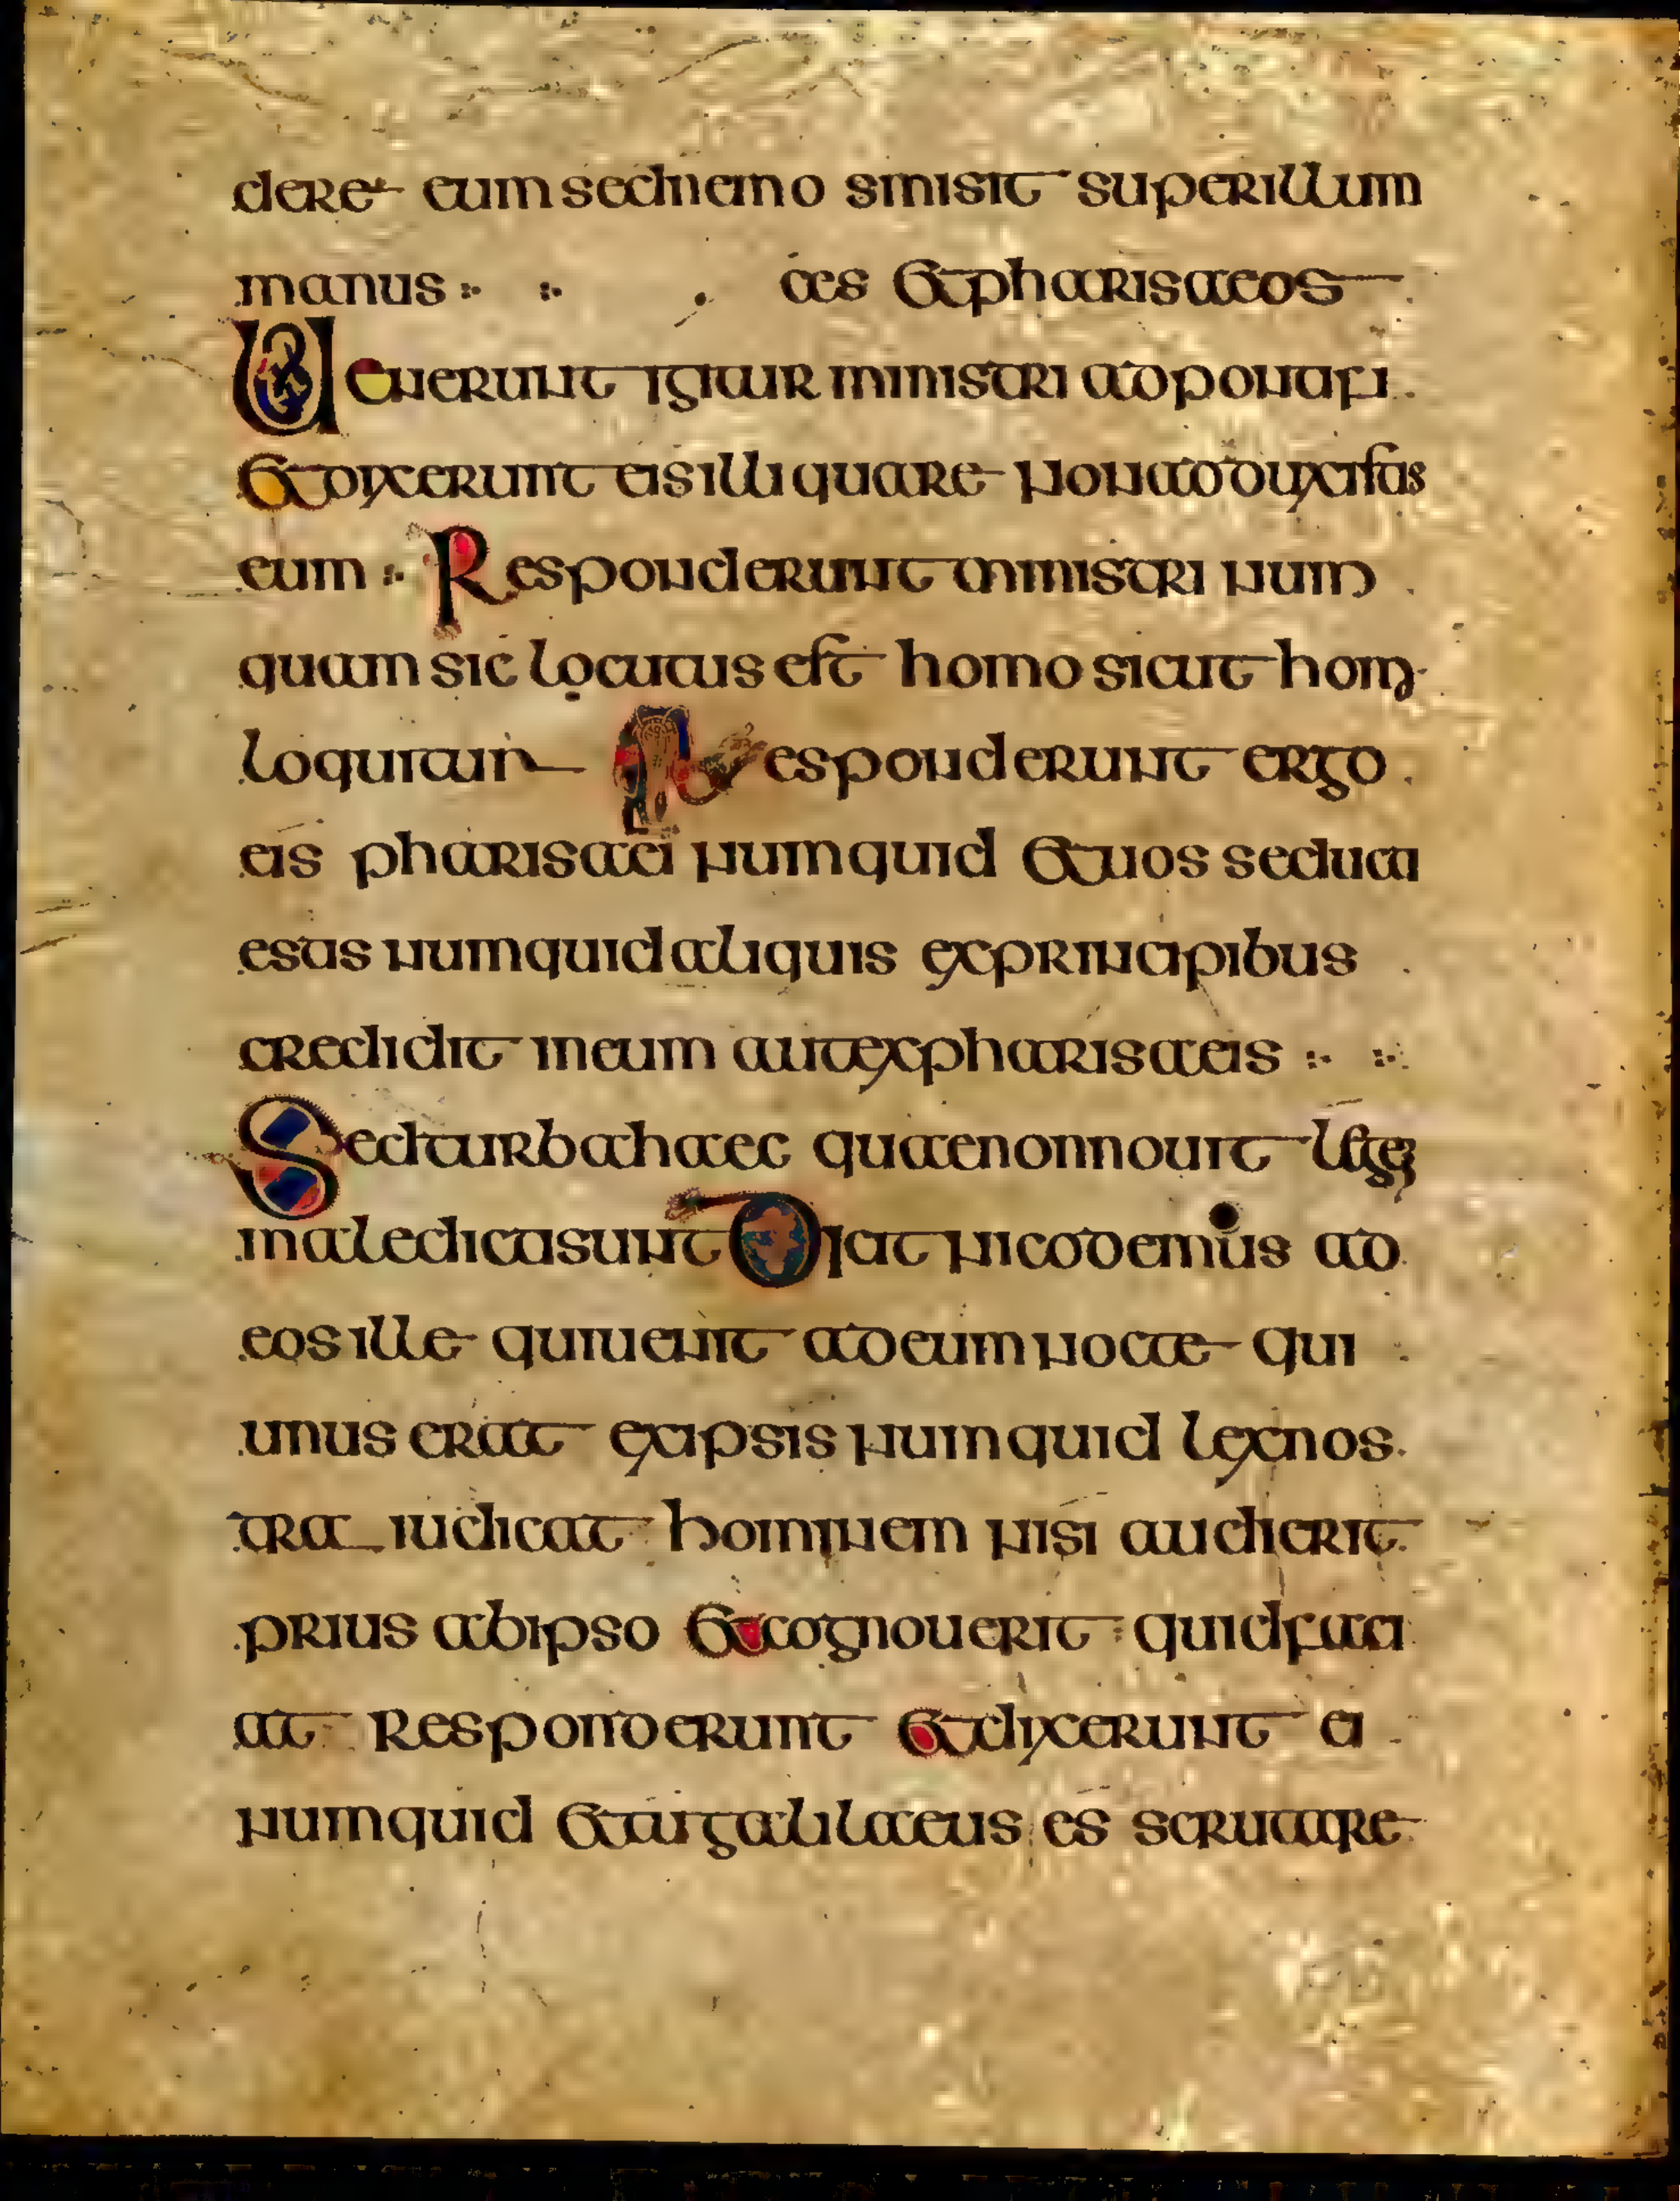 dere eum sed nemo misit super illum
manus ces et pharisaeos
Uenerunt igitur ministri ad pontifi
et dixerunt eis illi quare non adduxistis
eum Responderunt ministri num
quam sic locutus est homo sicut hom
loquitur Responderunt ergo
eis pharisaei numquid et uos seducti
estis numquid aliquis ex principibus
credidit in eum aut ex pharisaeis
Sed turba haec quae non nouit legem
maledicti sunt Dicit nicodemus ad
eos ille qui uenit ad eum nocte qui
unus erat ex ipsis numquid lex nos
tra iudicat hominem nisi audierit
prius ab ipso et cognouerit quid faci
at Responderunt et dixerunt ei
numquid et tu galilaeus es scrutare